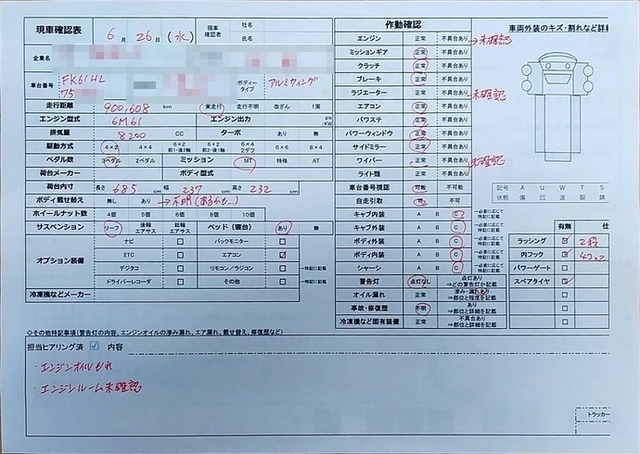 現車確認表
6月26日(水)
現車確認者
社名
氏名
企業名
車台番号
FK61HL
75
ボディータイプ
アルミウィング
走行距離 900,608 km 実走行 走行不明 改ざん 1周
エンジン型式 6M61 エンジン出力 ps/KW
排気量 8200 CC ターボ あり 無
駆動方式 4×2 4×4 6×2 前1・後2軸 6×2 前2・後1軸 6×4 2デフ 6×6 8×4
ペダル数 3ペダル 2ペダル ミッション MT 特殊 AT
荷台内容 ボディ型式
荷台内寸 長さ 685 cm 幅 237 cm 高さ 232 cm
ボディ載せ替え 無し あり →不明(あるかも…)
ホイールナット数 4個 5個 6個 8個 10個
サスペンション リーフ 後輪エアサス 総輪エアサス ベッド(寝台) あり 無
オプション装備
ナビ バックモニター
ETC エアコン
デジタコ リモコン/ラジコン →特記に記載
ドライブレコーダー その他 →特記に記載
冷凍機などメーカー
作動確認
エンジン 正常 不具合あり →未確認
ミッションギア 正常 不具合あり
クラッチ 正常 不具合あり
ブレーキ 正常 不具合あり
ラジエーター 正常 不具合あり 未確認
エアコン 正常 不具合あり
パワステ 正常 不具合あり
パワーウィンドウ 正常 不具合あり
サイドミラー 正常 不具合あり
ワイパー 正常 不具合あり 未確認
ライト類 正常 不具合あり
車台番号視認 可能 不可能
自走引取 可 不可
キャブ内装 A B C →必要に応じて特記に記載
キャブ外装 A B C →必要に応じて特記に記載
ボディ外装 A B C →必要に応じて特記に記載
ボディ内装 A B C →必要に応じて特記に記載
シャーシ A B C →必要に応じて特記に記載
警告灯 点灯なし 点灯あり ⇒どの警告灯か記載
オイル漏れ 正常 滲み・漏れあり ⇒部位と程度を記載
事故・修復歴 不明 あり ⇒部位と詳細を記載
冷凍機など固有装備 正常 不具合あり ⇒部位と詳細を記載
車両外装のキズ・割れなど詳細
記号 A U W T S
状態 傷 凹 波 裂 錆
有無 仕
ラッシング 2段
内フック 4コ×2
パワーゲート
スペアタイヤ
◇その他特記事項(警告灯の内容、エンジンオイルの滲み漏れ、エア漏れ、載せ替え、修復歴など)
担当ヒアリング済 内容
・エンジンオイルもれ
・エンジンルーム未確認
トラッカー